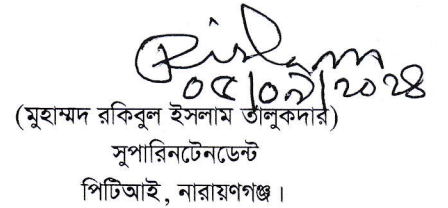 ০৫/০৯/২০২৪
(মুহাম্মদ রকিবুল ইসলাম তালুকদার)
সুপারিনটেনডেন্ট
পিটিআই, নারায়ণগঞ্জ।